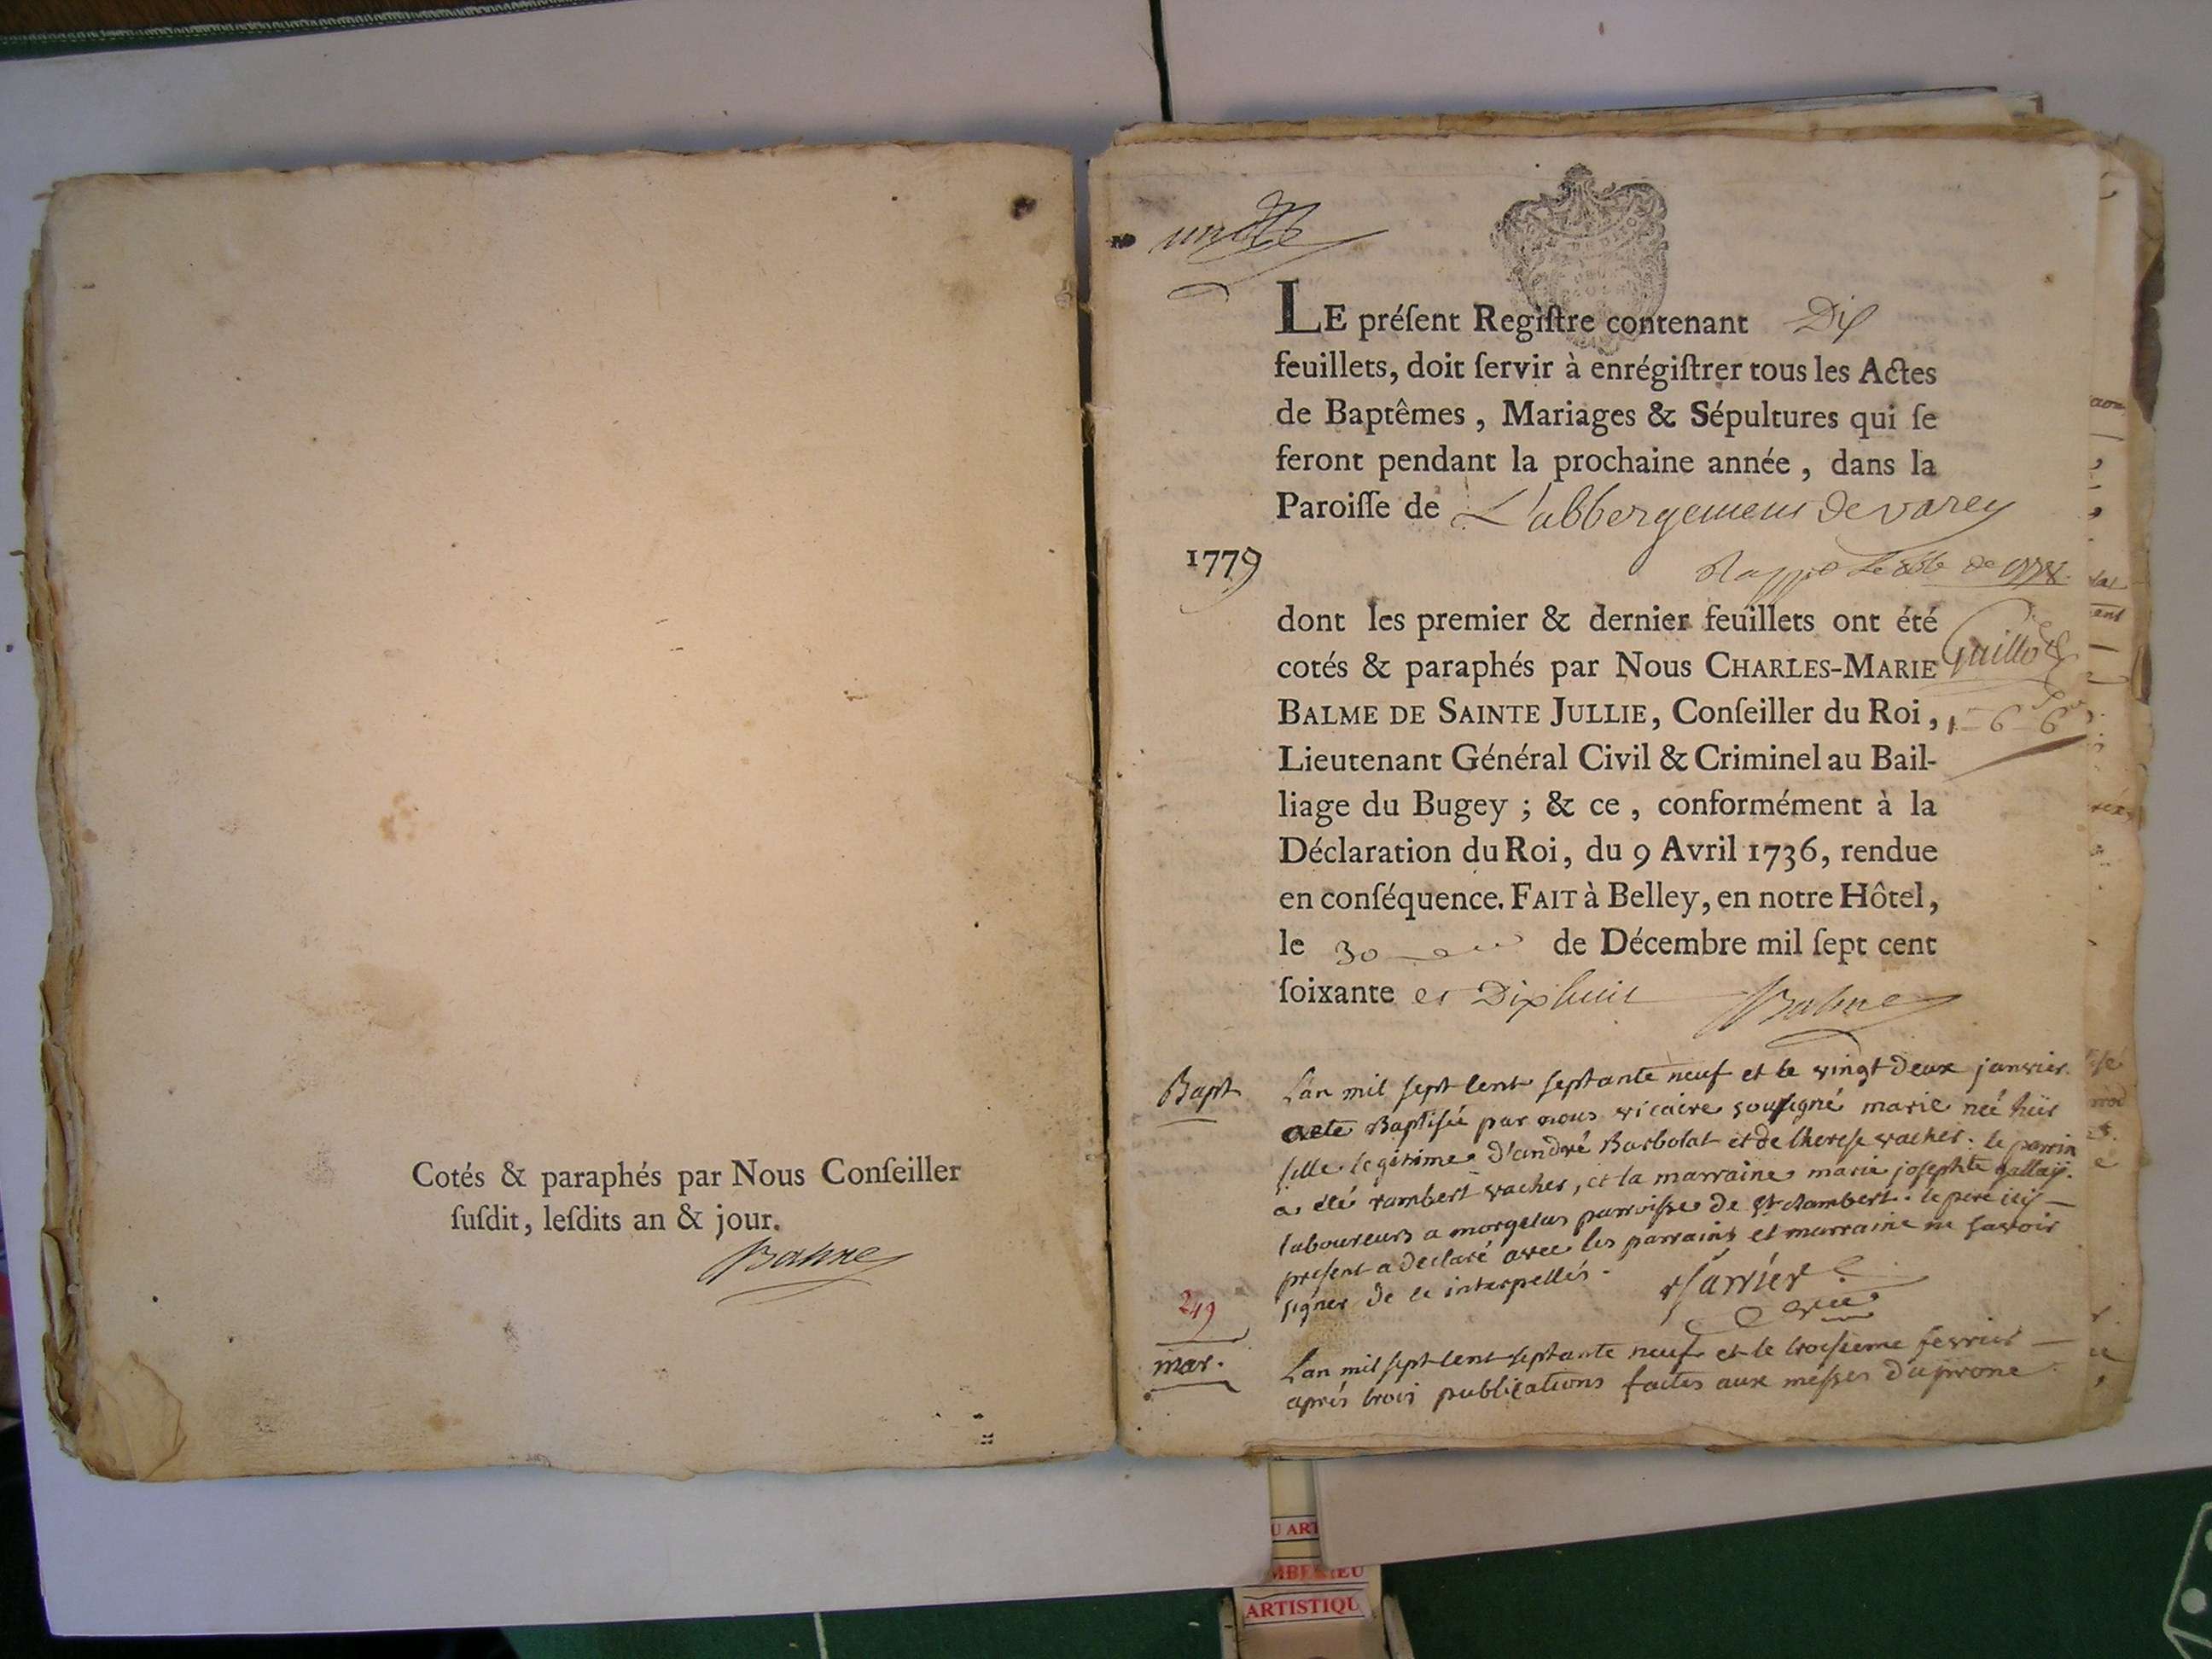 Cotés & paraphés par Nous Conſeiller
ſuſdit, leſdits an & jour.
Balme
LE préſent Regiſtre contenant Dix
feuillets, doit ſervir à enrégiſtrer tous les Actes
de Baptêmes, Mariages & Sépultures qui ſe
feront pendant la prochaine année, dans la
Paroiſſe de L'abbergement de varey
1779
dont les premier & dernier feuillets ont été
cotés & paraphés par Nous CHARLES-MARIE
BALME DE SAINTE JULLIE, Conſeiller du Roi,
Lieutenant Général Civil & Criminel au Bail-
liage du Bugey ; & ce, conformément à la
Déclaration du Roi, du 9 Avril 1736, rendue
en conſéquence. FAIT à Belley, en notre Hôtel,
le 30 de Décembre mil ſept cent
ſoixante et Dix huit Balme
Bapt. L'an mil sept cent septante neuf et le vingt deux janvier
a eté Baptisée par nous vicaire sousigné marie neé hier
fille legitime d'andré Barbolat et de therese vacher. le parrin
a été rambert vacher, et la marraine marie josephte gallay.
laboureurs a morgelas parroisse de St rambert. le pere icy
present a declaré avec les parrains et marraine ne savoir
signer de ce interpellés.
vic
249
mar. L'an mil sept cent septante neuf et le troisieme fevrier
aprés trois publications faites aux messes du prone
ARTISTIQU